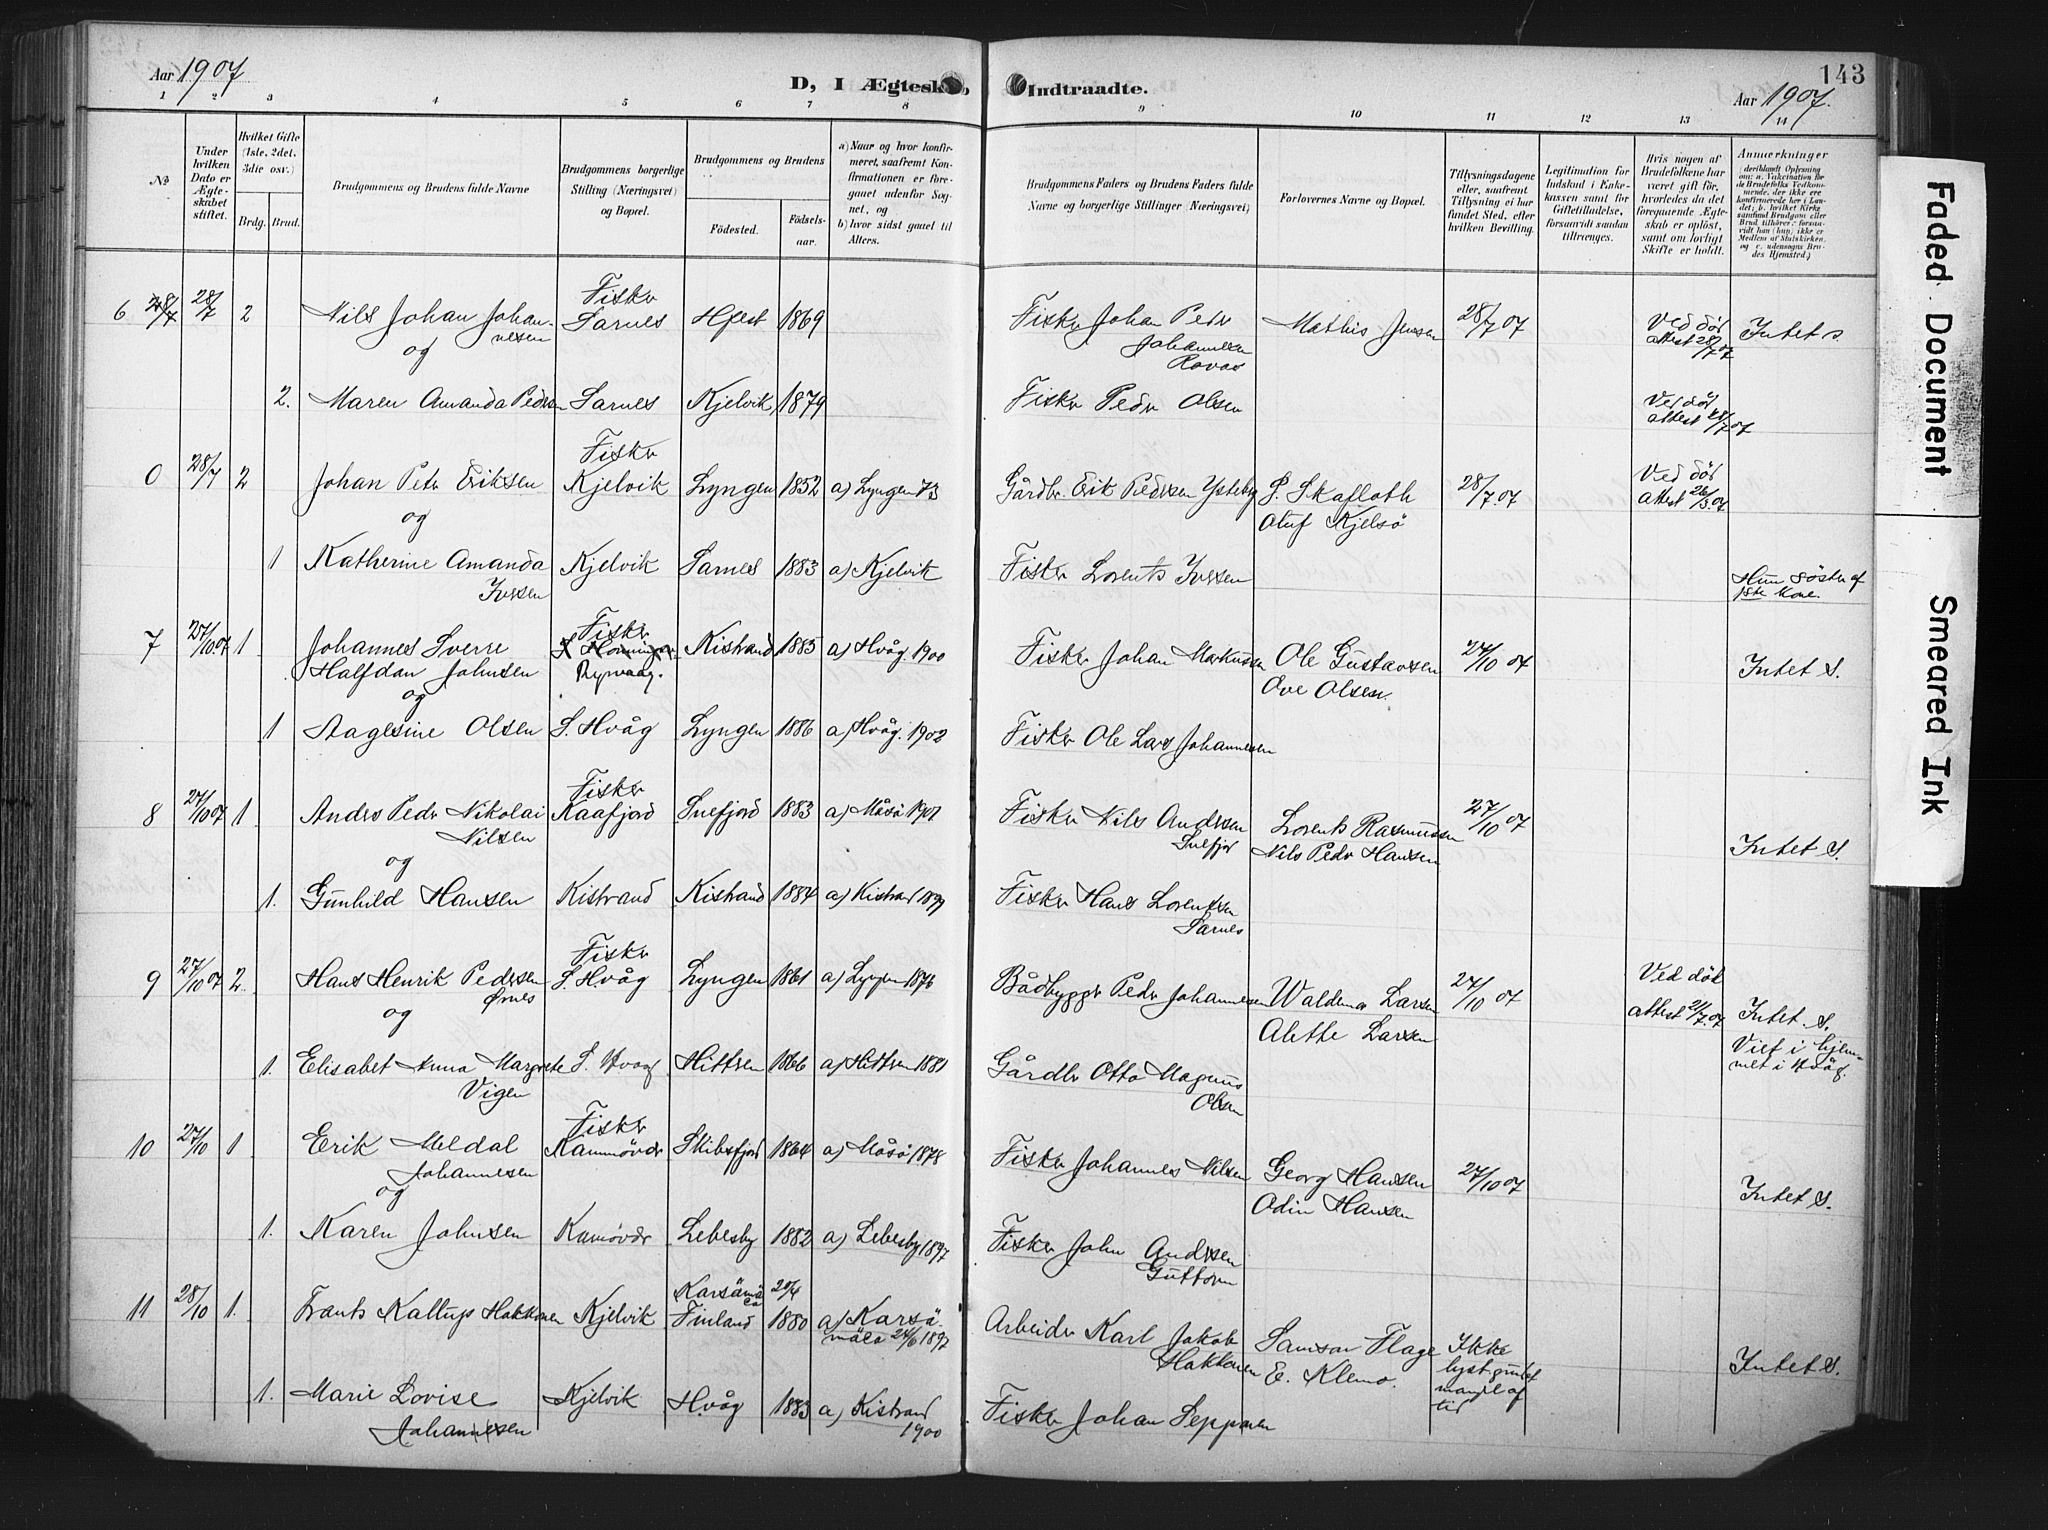 Aar 1907
D, I Ægtesk
Indtraadte.
Aar 1907.
143
1 2 3 4 5 6 7 8 9 10 11 12 13 14
№
Under hvilken Dato er Ægteskabet stiftet.
Hvilket Gifte (1ste, 2det, 3die osv.)
Brdg. Brud.
Brudgommens og Brudens fulde Navne
Brudgommens borgerlige Stilling (Næringsvei) og Bopæl.
Brudgommens og Brudens
Fødested.
Fødsels-aar.
a) Naar og hvor konfirmeret, saafremt Konfirmationen er foregaaet udenfor Sognet, og
b) hvor sidst gaaet til Alters.
Brudgommens Faders og Brudens Faders fulde Navne og borgerlige Stillinger (Næringsvei)
Forlovernes Navne og Bopæl.
Tillysningsdagene eller, saafremt Tillysning ei har fundet Sted, efter hvilken Bevilling.
Legitimation for Indskud i Enkekassen samt for Giftetilladelse, forsaavidt saadan tiltrænges.
Hvis nogen af Brudefolkene har været gift før, hvorledes da det foregaaende Ægteskab er opløst, samt om lovligt Skifte er holdt.
Anmerkninger
(deriblandt Oplysning om: a. Vakcination for de Brudefolks Vedkommende, der ikke ere konfirmerede her i Landet; b. hvilket Kirkesamfund Brudgom eller Brud tilhører, forsaavidt han (hun) ikke er Medlem af Statskirken, og c. udensogns Brudes Hjemsted.)
6 28/7 28/7 2 Nils Johan Johannesen Fisker Sarnes Hfest 1869 Fisker Johan Peder Johannesen Mathis Jensen 28/7 07 Ved død attest 28/7 07 Intet S.
og
2. Maren Amanda Pedersen Sarnes Kjelvik 1879 Fisker Peder Olsen Ved død attest 28/7 07
0 28/7 2 Johan Peter Eriksen Fisker Kjelvik Lyngen 1852 a) Lyngen 73 Gårdbr. Erik Pedersen Ysteby S. Skafloth Oluf Kjelsö 28/7.07 Ved död attest 26/3.07
og
1 Katherine Amanda Iversen Kjelvik Sarnes 1883 a) Kjelvik Fisker Lorents Iversen Hun söster af 1ste kone.
7 27/10.07 1 Johannes Sverre Halfdan Johnsen Fisker Kistrand 1885 a) Hvåg. 1900 Fisker Johan Markussen Ole Gustavsen Ove Olsen. 27/10 07 Intet S.
og
1 Aagesine Olsen S. Hvåg Lyngen 1886 a) Hvåg. 1902 Fisker Ole Lars Johannesen
8 27/10 07 1 Anders Peder Nikolai Nilsen Fisker Kaafjord Snefjord 1883 a) Måsö 1901 Fisker Nils Andersen Snefjor Lorents Rasmussen Nils Peder Hansen 27/10 07 Intet S.
og
1. Gunhild Hansen Kistrand Kistrand 1884 a) Kistrand 1899 Fisker Hans Lorentsen Sarnes
9 27/10 07 2. Hans Henrik Pedersen Örnes Fisker S. Hvåg Lyngen 1861 a) Lyngen 1876 Bådbygger Peder Johannesen Waldemar Larsen Alette Larsen 27/10 07 Ved död attest 21/7.07 Intet S.
og
Viet i hjemmet i Hvåg.
1. Elisabet Anna Margrete Vigen S. Hvaag Hittren 1866 a) Hittren 1881 Gårdbr Otto Magnus Olsen
10 27/10 1 Erik Meldal Johannesen Fisker Kammövær Skibsfjord 1864 a) Måsö 1878 Fisker Johannes Nilsen Georg Hansen Odin Hansen 27/10 07 Intet S.
og
1. Karen Johnsen Kamövær Lebesby 1882 a) Lebesby 1897 Fisker John Andersen Guttorm
11 28/10 1. Frants Kallup Hakkonen Kjelvik Karsämä Finland 1880 a) Karsämäla 24/6 1897 Arbeider Karl Jakob Hakkonen Samson Flage E. Klemo. Ikke lyst grundet mangel af tid Intet S.
1. Marie Lovise Johannesen Kjelvik Hvåg 1883 a) Kistrand 1900 Fisker Johan Sepponen
Faded Document
Smeared Ink